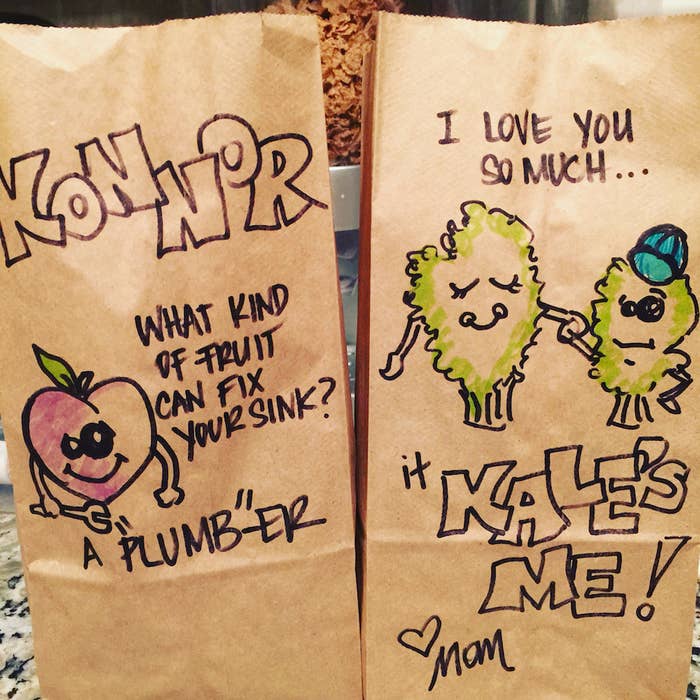 KONNOR
WHAT KIND
OF FRUIT
CAN FIX
YOUR SINK?
A "PLUMB"-ER
I LOVE YOU
SO MUCH...
it KALE'S
ME!
♡ Mom